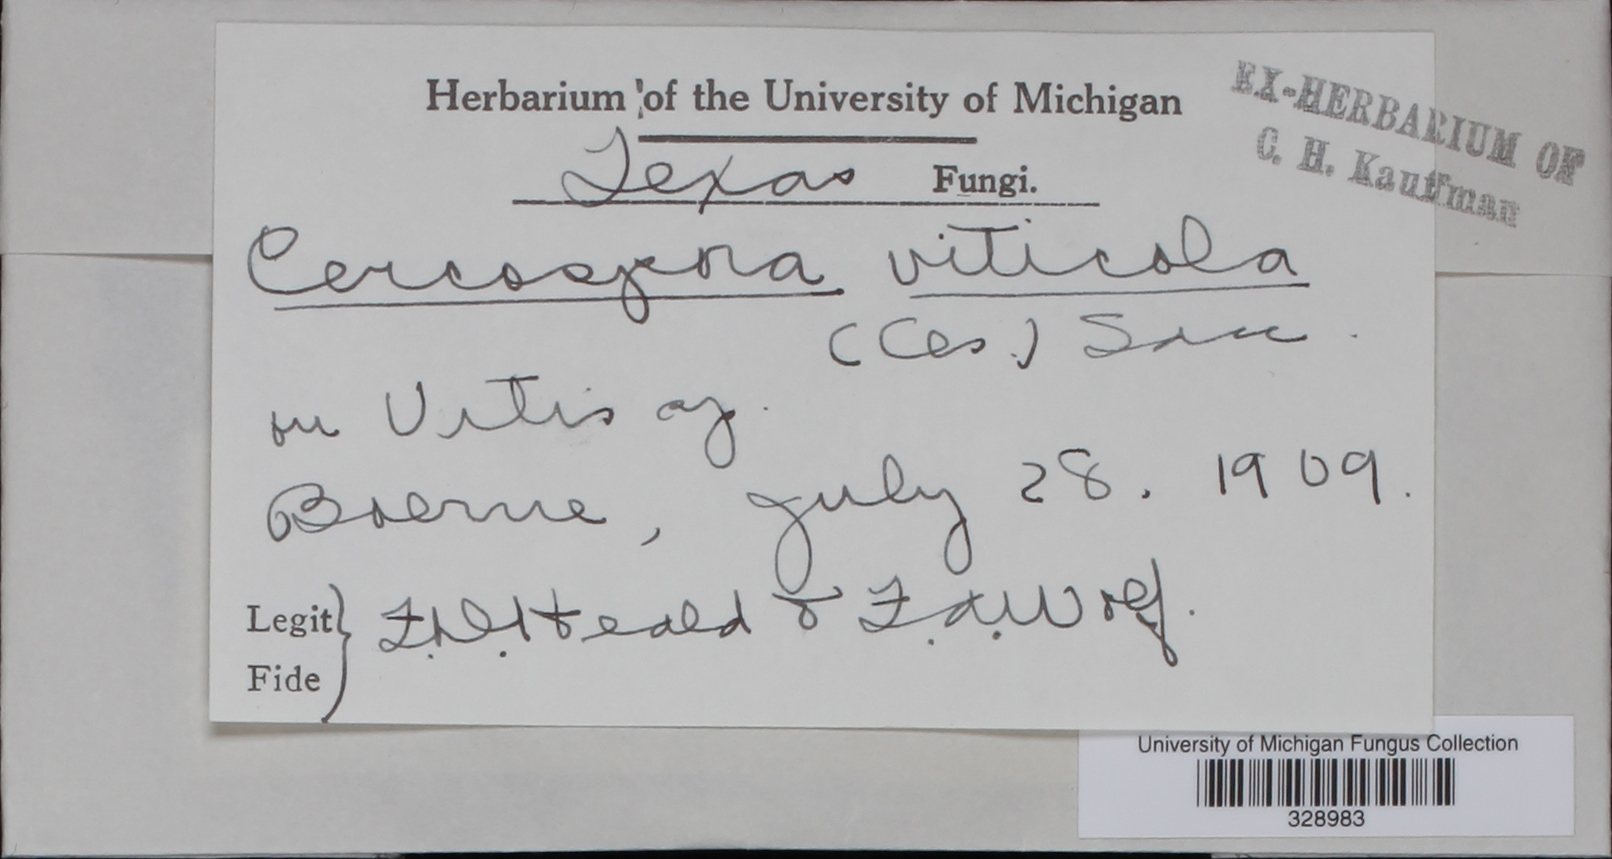 Herbarium of the University of Michigan
EX-HERBARIUM OF
C. H. Kauffman
Texas Fungi.
Cercospora viticola
(Ces.) Sacc.
on Vitis sp.
Boerne, July 28. 1909.
Legit
Fide
F.D. Heald & F.A. Wolf.
University of Michigan Fungus Collection
328983